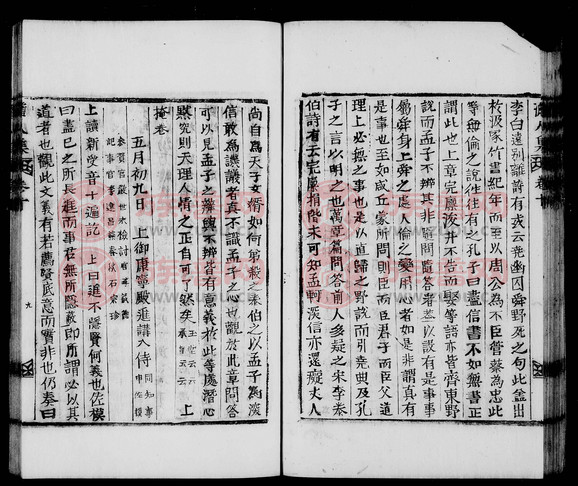 李白遠別離詩有或云堯幽囚舜野死之句此盖出
於汲冢竹書紀年而至以周公為不臣管蔡為忠此
等無倫之說往往有之孔子曰盡信書不如無書正
謂此也上章完廩浚井不告而娶等語亦皆齊東野
說而孟子不辨其非隨問隨答者盖以設有是事事
獨舜身上善處人倫之變用權者如是非謂真有
是事也至如咸丘蒙所問則臣而臣君子而臣父道
理上必無之事也故直歸之野說而引堯典及孔
子之言以明之也萬章篇問答前人多疑之宋李泰
伯詩有云完廩捐階未可知孟軻深信亦還癡丈人
尚自為天子女婿如何弟殺之泰伯之以孟子為深
信敢為譏議者真不識孟子之心也觀於此章問答
可以見孟子之辨與不辨皆有意義於此等處潛心
默究則天理人情之正自可了然矣 上
掩卷
五月初九日 上御康寧殿進講入侍 同知事
上讀新受音十遍訖 上曰進不隱賢何義也佐模
曰盡己之所長進而事君無所隱蔽即所謂必以其
道者也觀此文義有若薦賢底意而實非也仍奏曰
九